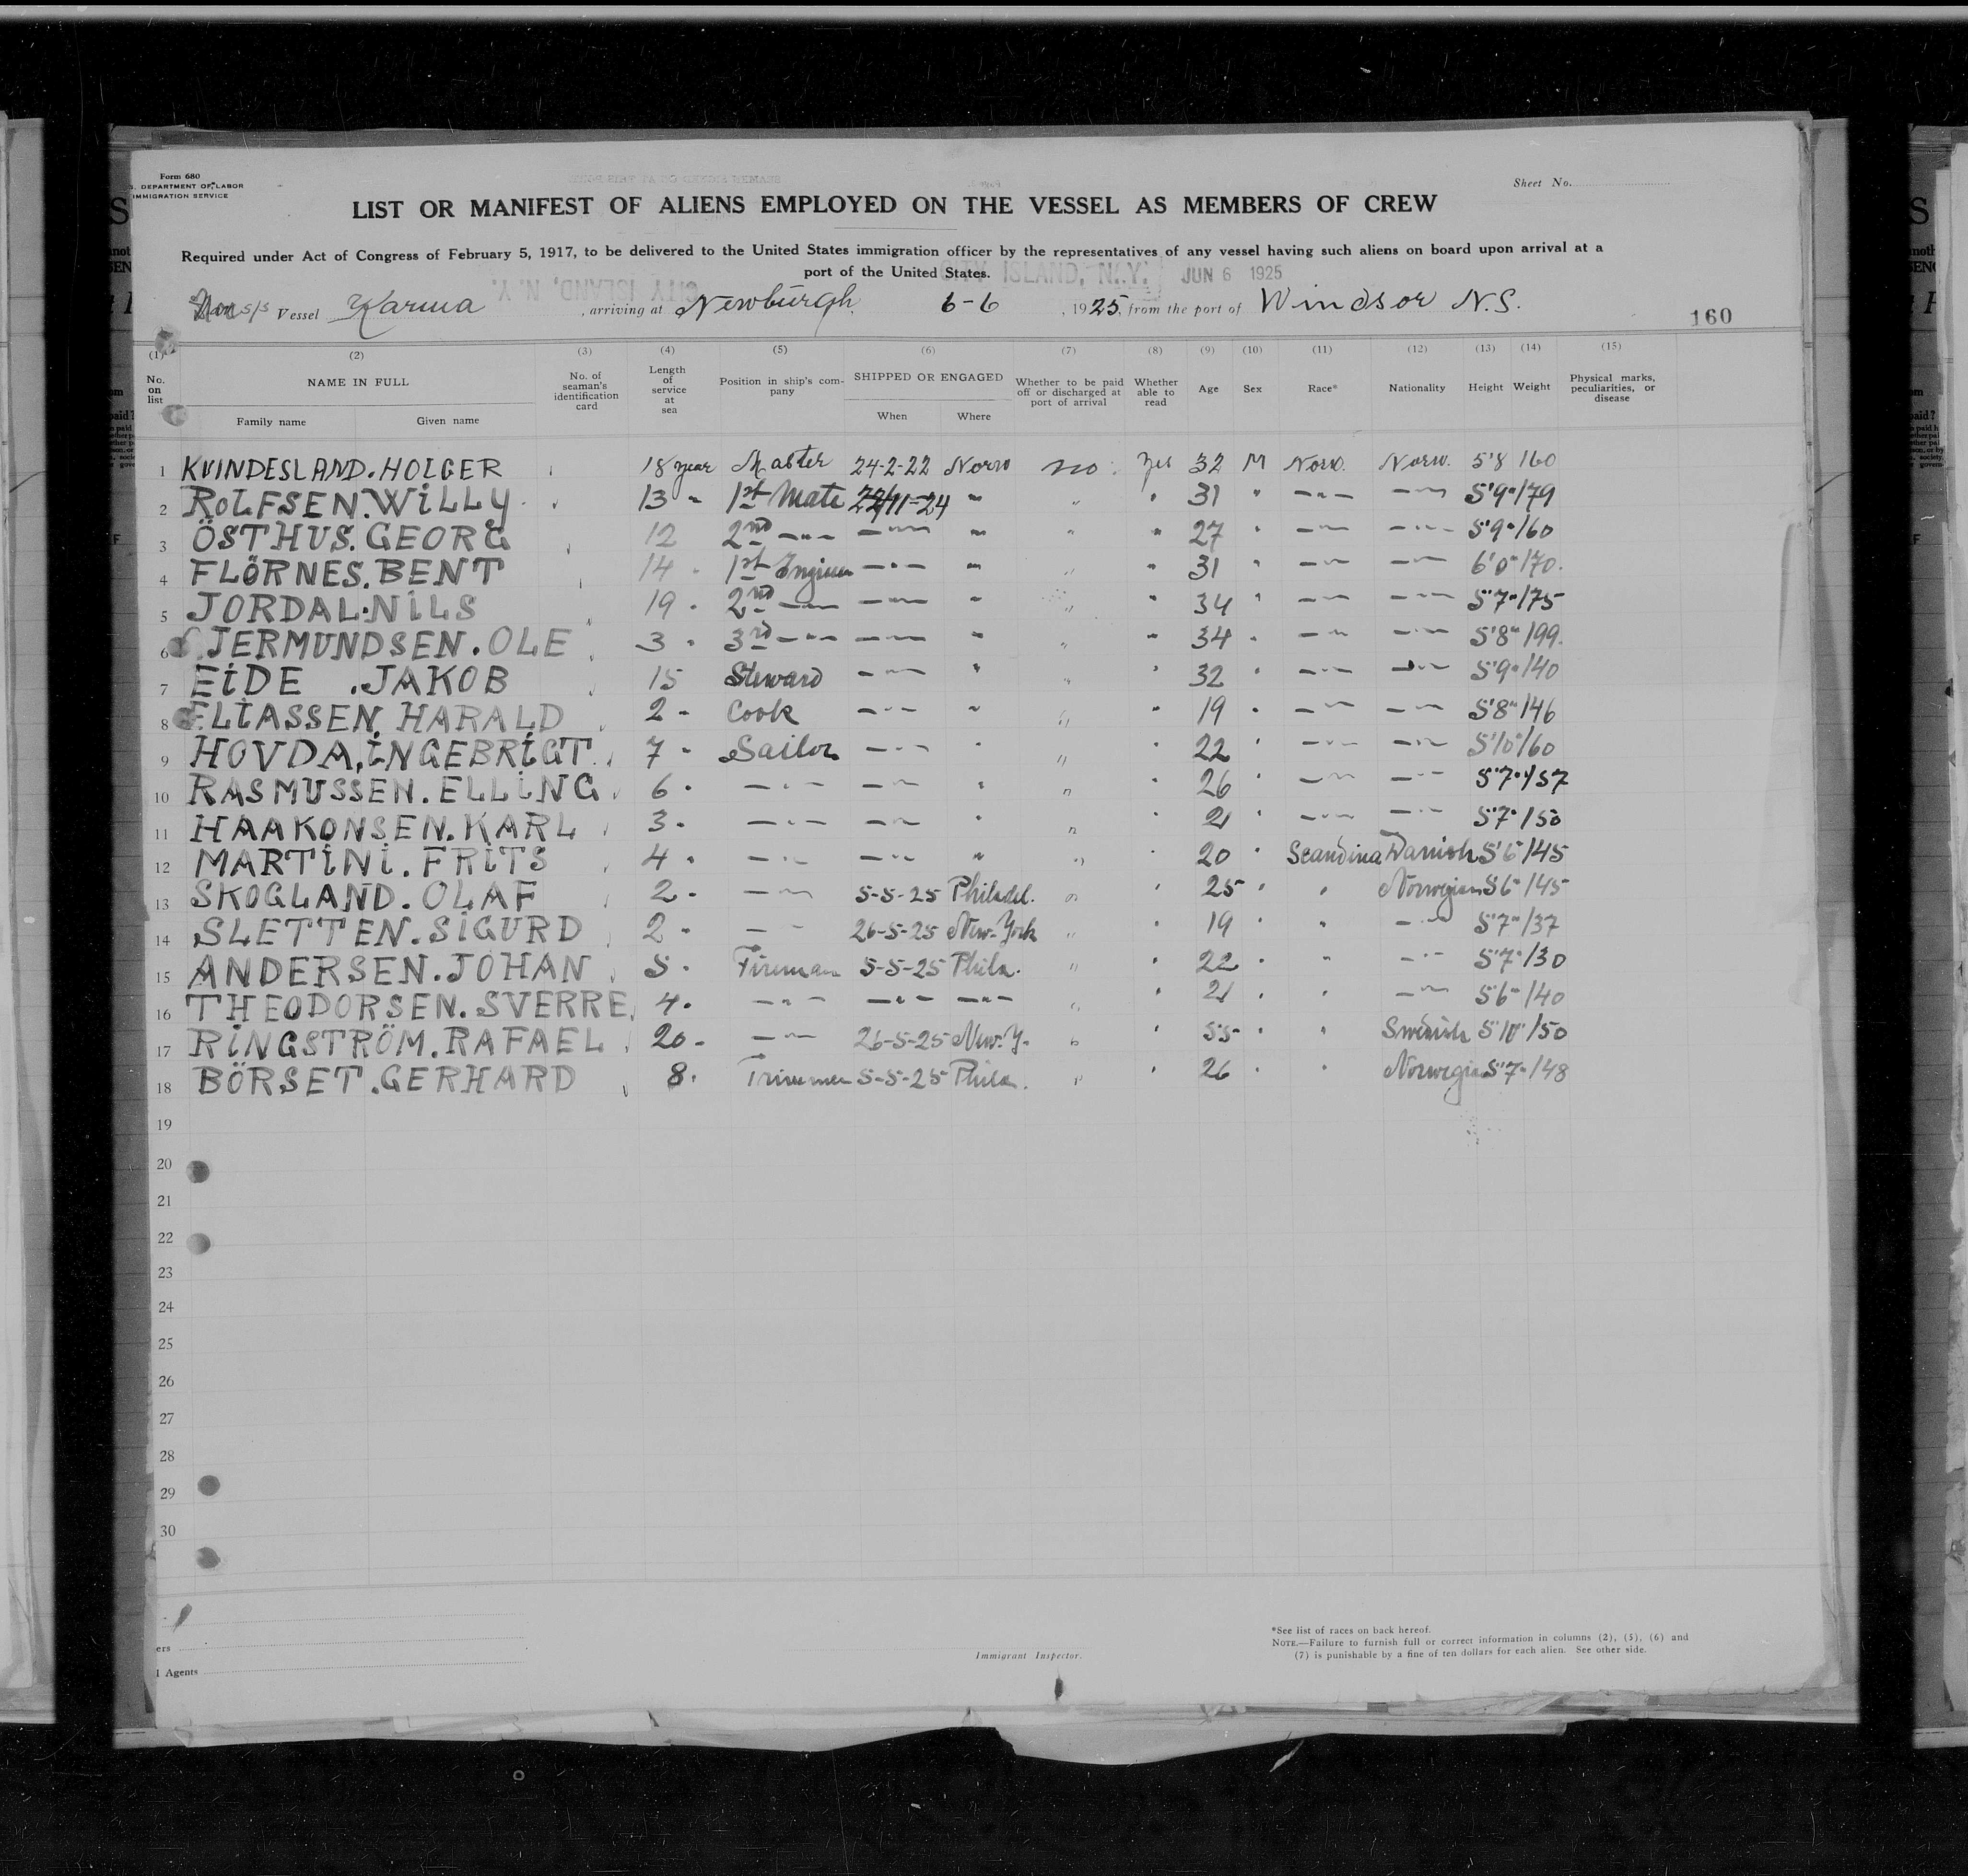 Form 680
DEPARTMENT OF LABOR
IMMIGRATION SERVICE
Sheet No.
LIST OR MANIFEST OF ALIENS EMPLOYED ON THE VESSEL AS MEMBERS OF CREW
Required under Act of Congress of February 5, 1917, to be delivered to the United States immigration officer by the representatives of any vessel having such aliens on board upon arrival at a
port of the United States.
CITY ISLAND, N.Y. JUN 6 1925
s/s Vessel Karma, arriving at Newburgh 6-6, 1925, from the port of Windsor N.S.
160
(1) (2) (3) (4) (5) (6) (7) (8) (9) (10) (11) (12) (13) (14) (15)
No. on list NAME IN FULL No. of seaman's identification card Length of service at sea Position in ship's company SHIPPED OR ENGAGED Whether to be paid off or discharged at port of arrival Whether able to read Age Sex Race* Nationality Height Weight Physical marks, peculiarities, or disease
Family name Given name When Where
1 KVINDESLAND. HOLGER 18 year Master 24-2-22 Norw no. Yes 32 M Norw. Norw. 5'8 160
2 ROLFSEN. WILLY. 13 " 1st Mate 22/11-24 " " " 31 " -"- -"- 5'9" 179
3 ÖSTHUS. GEORG 12 2nd -"- -"- " " " 27 " -"- -"- 5'9" 160
4 FLÖRNES. BENT 14 " 1st Engineer -"- " " " 31 " -"- -"- 6'0" 170.
5 JORDAL. NILS 19 " 2nd -"- -"- " " " 34 " -"- -"- 5'7" 175
6 JERMUNDSEN. OLE 3 " 3rd -"- -"- " " " 34 " -"- -"- 5'8" 199.
7 EIDE. JAKOB 15 Steward -"- " " " 32 " -"- -"- 5'9" 140
8 ELIASSEN. HARALD 2 " Cook -"- " " " 19 " -"- -"- 5'8" 146
9 HOVDA, INGEBRIGT. 7 " Sailor -"- " " " 22 " -"- -"- 5'10" 160
10 RASMUSSEN. ELLING 6 " -"- -"- " " " 26 " -"- -"- 5'7" 157
11 HAAKONSEN. KARL 3 " -"- -"- " " " 21 " -"- -"- 5'7" 150
12 MARTINI. FRITS 4 " -"- -"- " " " 20 " Scandina Danish 5'6" 145
13 SKOGLAND. OLAF 2 " -"- 5-5-25 Philadel. " " 25 " " Norwegian 5'6" 145
14 SLETTEN. SIGURD 2 " -"- 26-5-25 New-York " 19 " " -"- 5'7" 137
15 ANDERSEN. JOHAN 5 " Fireman 5-5-25 Phila. " " 22 " " -"- 5'7" 130
16 THEODORSEN. SVERRE 4 " -"- -"- -"- " " 21 " " -"- 5'6" 140
17 RINGSTRÖM. RAFAEL 20 " -"- 26-5-25 New. Y. " " 55 " " Swedish 5'10" 150
18 BÖRSET. GERHARD 8 " Trimmer 5-5-25 Phila. " " 26 " " Norwegian 5'7" 148
19
20
21
22
23
24
25
26
27
28
29
30
ers
l Agents
Immigrant Inspector.
*See list of races on back hereof.
NOTE.—Failure to furnish full or correct information in columns (2), (5), (6) and
(7) is punishable by a fine of ten dollars for each alien. See other side.